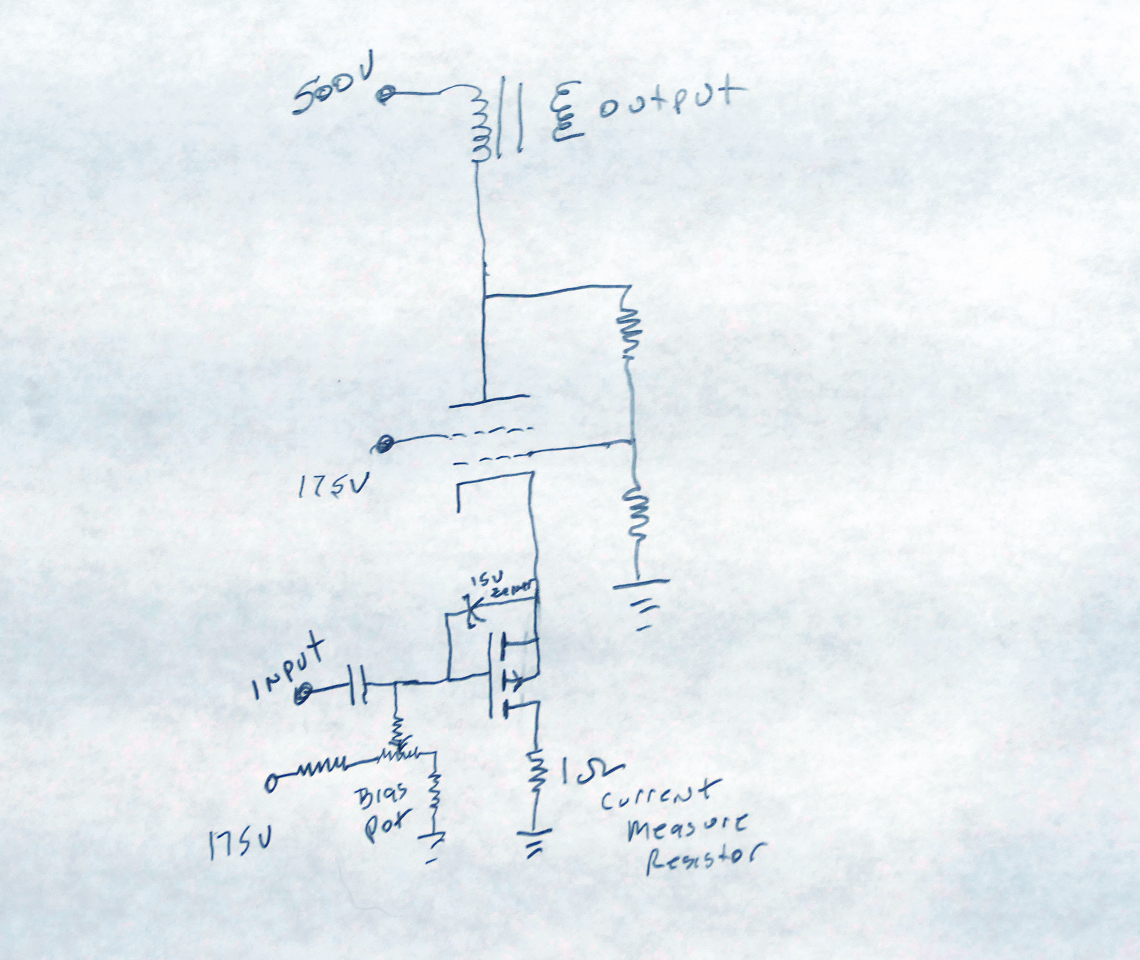 500V
output
175V
15V
zener
INPUT
1Ω
Current
Measure
Resistor
Bias
Pot
175V